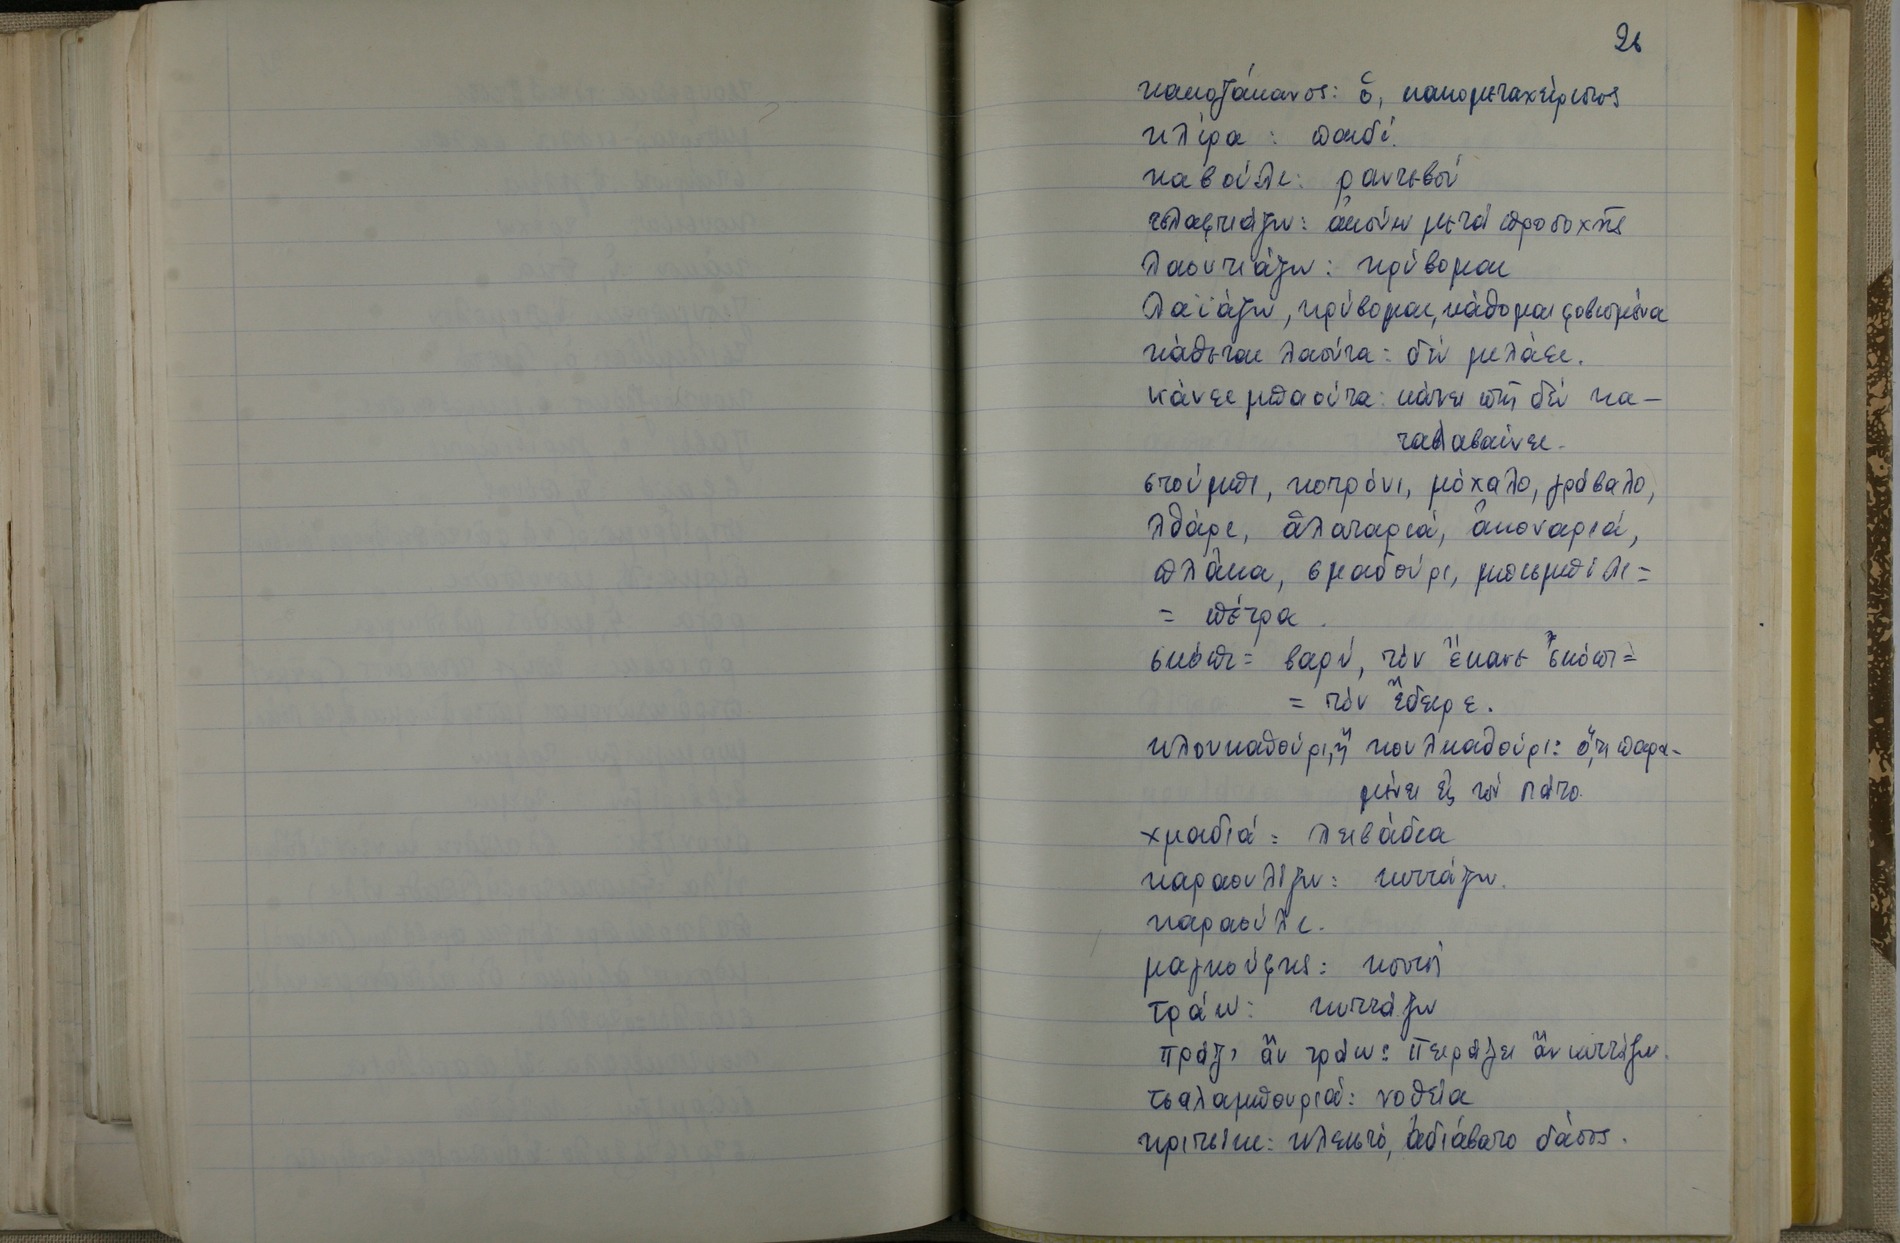 26
κακοζάκανος: ὁ, κακομεταχείριστος
κλίρα : παιδί.
καβούλι: ραντεβού
τσλαφτιάζω: ἀκούω μετά προσοχῆς
λαουτιάζω: κρύβομαι
λαϊάζω, κρύβομαι, κάθομαι φοβισμένα
κάθεται λαούτα: δέν μιλάει.
κάνει μπαούτα: κάνει πῶς δέν κα-
ταλαβαίνει.
στούμπι, κοτρόνι, μόχαλο, γρόβαλο,
λθάρι, ἀλαταριά, ἀκοναριά,
πλάκα, σμαδούρι, μπισμπίλι =
= πέτρα.
σκόπι = βαρύ, τόν ἔκανε σκόπι =
= τόν ἔδειρε.
κλουκαθούρι, ἤ κουλκαθούρι: ὅ,τι παρα-
μένει εἰς τόν πάτο.
χμαδιά = λειβάδια
καραουλίζω: κυττάζω.
καραούλι.
μαγκούφης: κουτσή
τράω: κυττάζω
πράζ' ἄν τράω: πειράζει ἄν κυττάζω.
τσαλαμπουριά: νοθεία
κριτσίκι: κλειστό, ἀδιάβατο δάσος.